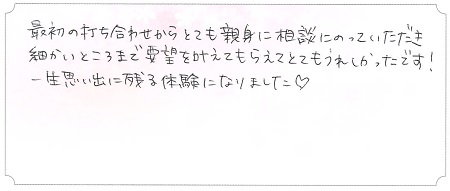 最初の打ち合わせからとても親身に相談にのっていただき
細かいところまで要望を叶えてもらえてとてもうれしかったです！
一生思い出に残る体験になりました♡